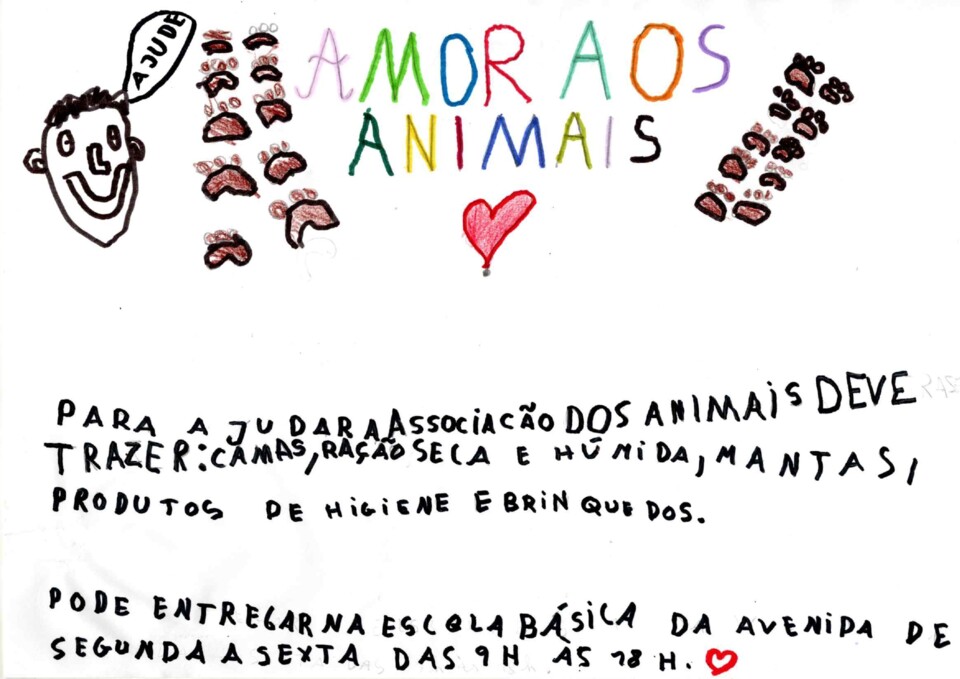 AJUDE
AMOR AOS
ANIMAIS
PARA AJUDAR A ASSOCIACÃO DOS ANIMAIS DEVE
TRAZER: CAMAS, RAÇÃO SECA E HÚMIDA, MANTAS,
PRODUTOS DE HIGIENE E BRINQUEDOS.
PODE ENTREGAR NA ESCOLA BÁSICA DA AVENIDA DE
SEGUNDA A SEXTA DAS 9H ÀS 18H.